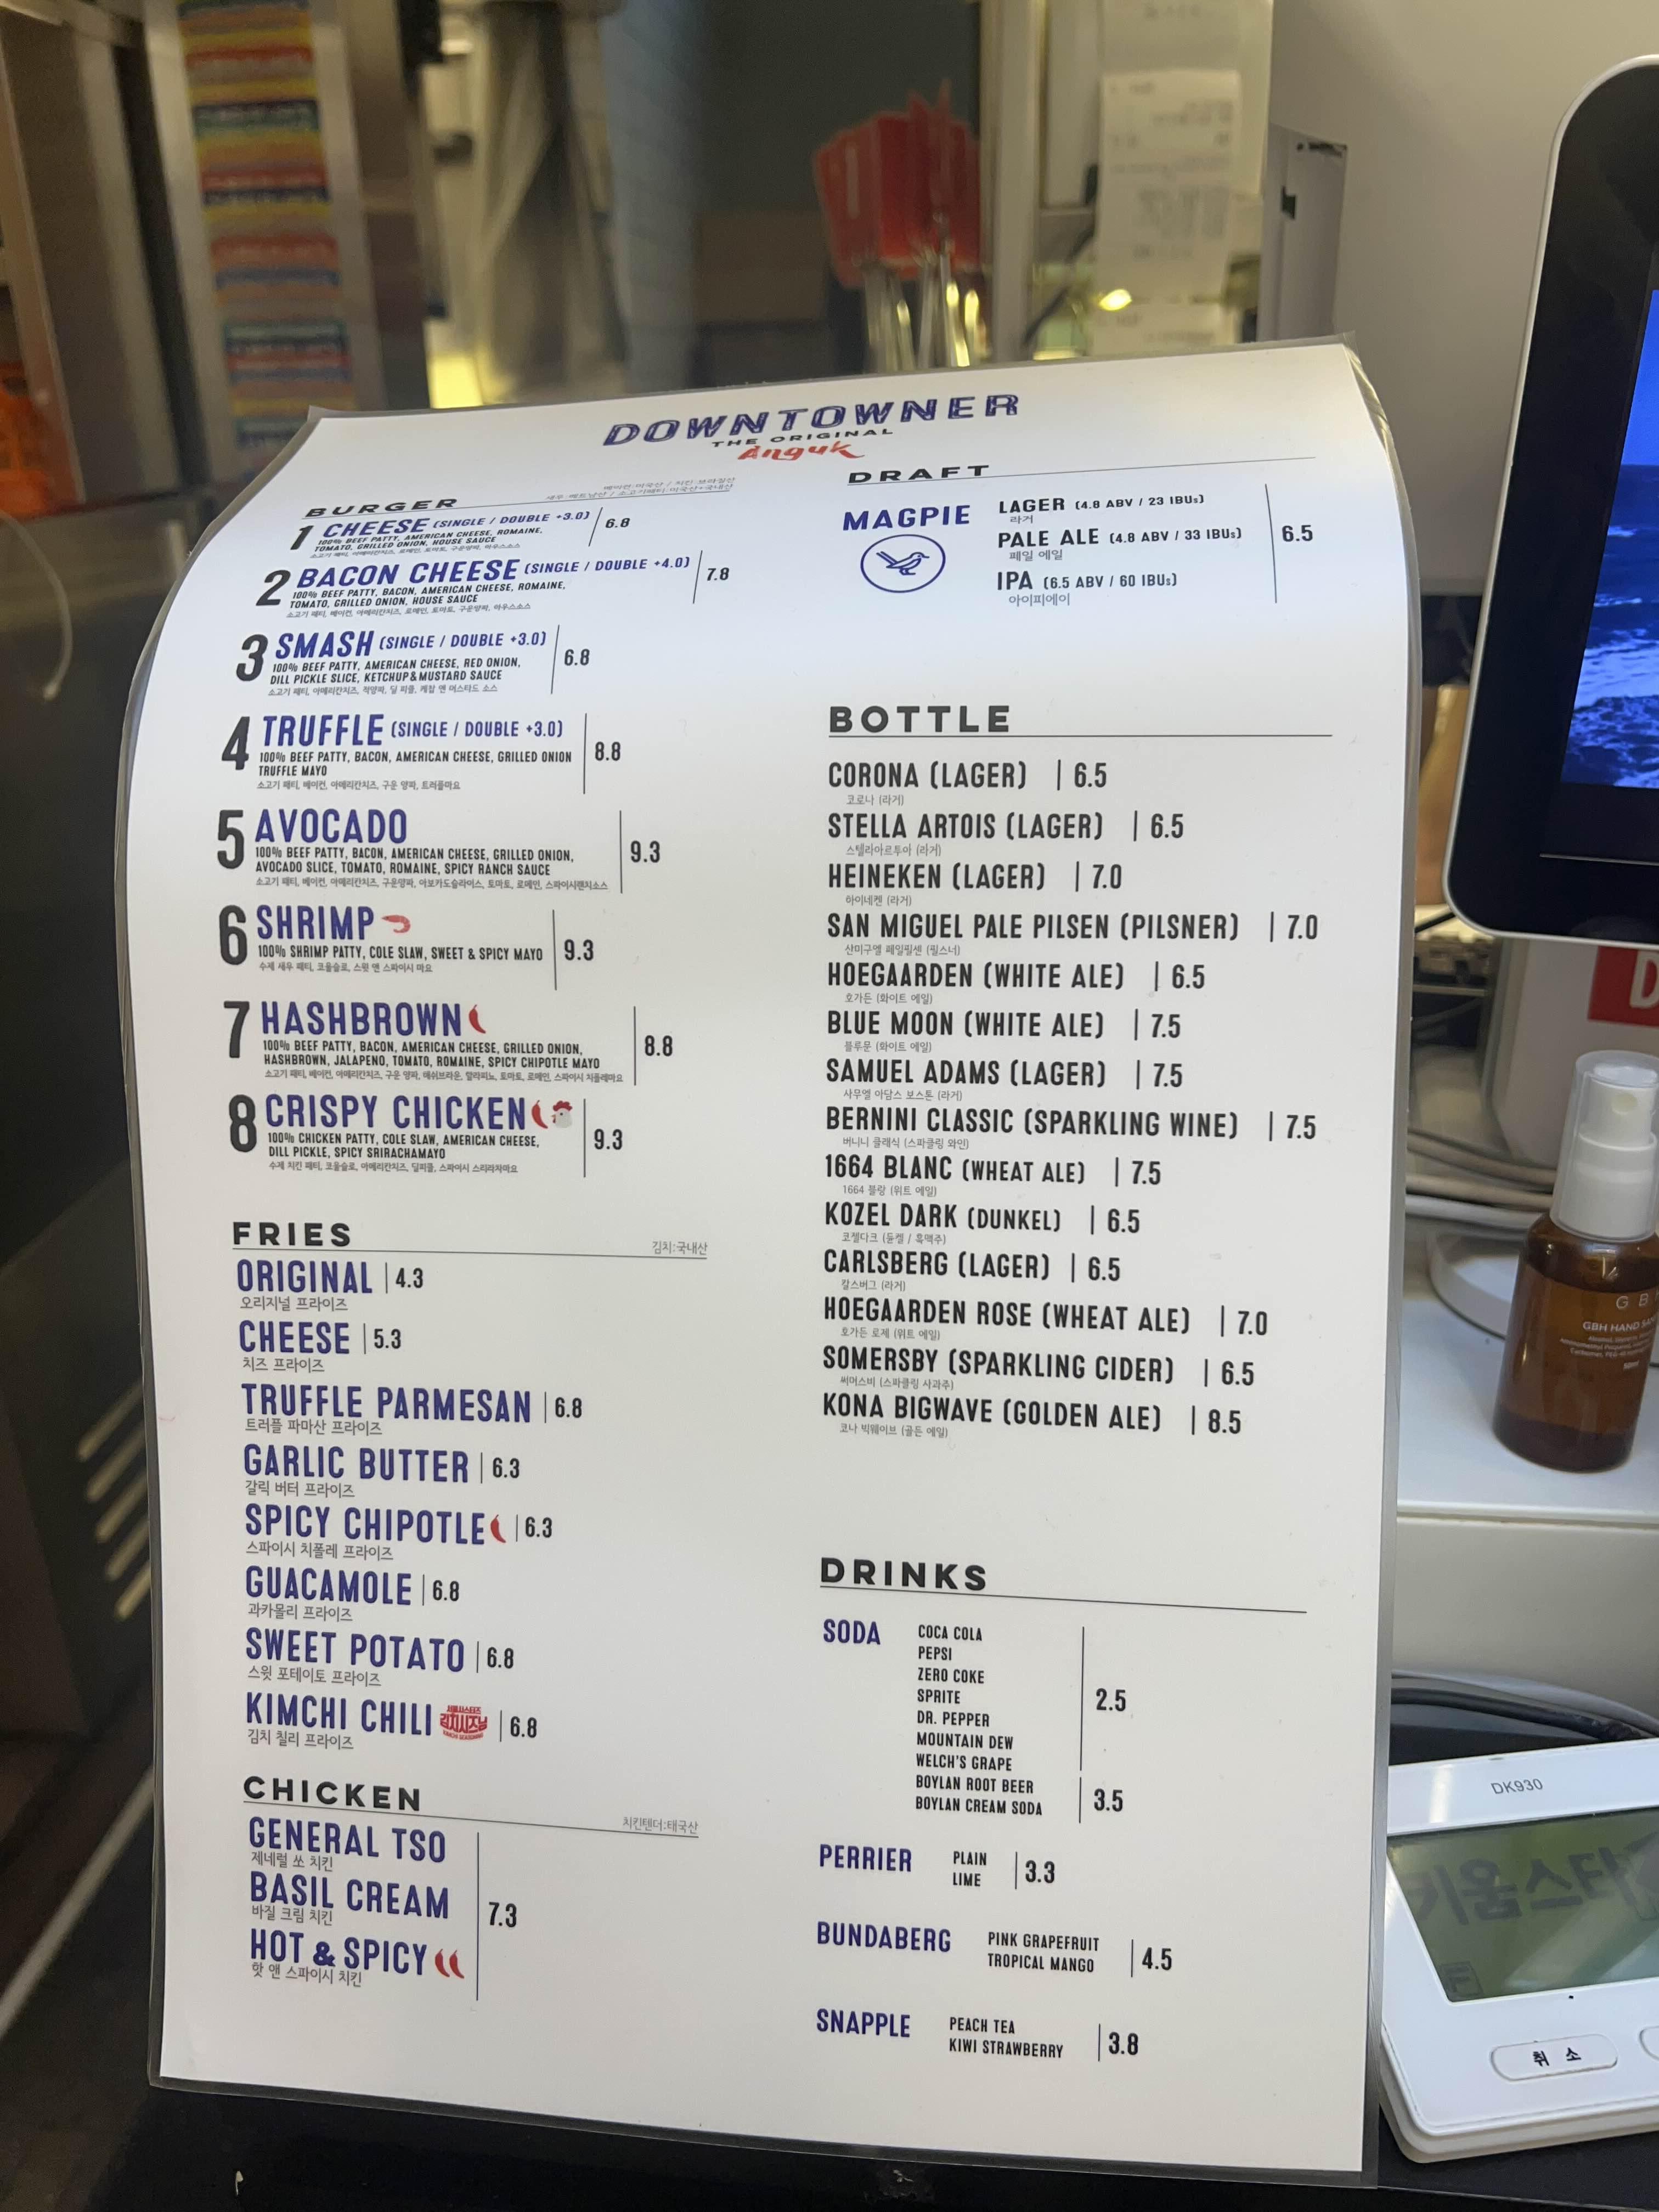 DOWNTOWNER
THE ORIGINAL
Anguk
BURGER
베이컨:미국산 / 치킨:브라질산
새우:베트남산 / 소고기패티:미국산+국내산
1 CHEESE (SINGLE / DOUBLE +3.0) 6.8
100% BEEF PATTY, AMERICAN CHEESE, ROMAINE,
TOMATO, GRILLED ONION, HOUSE SAUCE
소고기 패티, 아메리칸치즈, 로메인, 토마토, 구운양파, 하우스소스
2 BACON CHEESE (SINGLE / DOUBLE +4.0) 7.8
100% BEEF PATTY, BACON, AMERICAN CHEESE, ROMAINE,
TOMATO, GRILLED ONION, HOUSE SAUCE
소고기 패티, 베이컨, 아메리칸치즈, 로메인, 토마토, 구운양파, 하우스소스
3 SMASH (SINGLE / DOUBLE +3.0) 6.8
100% BEEF PATTY, AMERICAN CHEESE, RED ONION,
DILL PICKLE SLICE, KETCHUP&MUSTARD SAUCE
소고기 패티, 아메리칸치즈, 적양파, 딜 피클, 케찹 앤 머스타드 소스
4 TRUFFLE (SINGLE / DOUBLE +3.0) 8.8
100% BEEF PATTY, BACON, AMERICAN CHEESE, GRILLED ONION
TRUFFLE MAYO
소고기 패티, 베이컨, 아메리칸치즈, 구운 양파, 트러플마요
5 AVOCADO 9.3
100% BEEF PATTY, BACON, AMERICAN CHEESE, GRILLED ONION,
AVOCADO SLICE, TOMATO, ROMAINE, SPICY RANCH SAUCE
소고기 패티, 베이컨, 아메리칸치즈, 구운양파, 아보카도슬라이스, 토마토, 로메인, 스파이시랜치소스
6 SHRIMP 9.3
100% SHRIMP PATTY, COLE SLAW, SWEET & SPICY MAYO
수제 새우 패티, 코울슬로, 스윗 앤 스파이시 마요
7 HASHBROWN 8.8
100% BEEF PATTY, BACON, AMERICAN CHEESE, GRILLED ONION,
HASHBROWN, JALAPENO, TOMATO, ROMAINE, SPICY CHIPOTLE MAYO
소고기 패티, 베이컨, 아메리칸치즈, 구운 양파, 해쉬브라운, 할라피뇨, 토마토, 로메인, 스파이시 치폴레마요
8 CRISPY CHICKEN 9.3
100% CHICKEN PATTY, COLE SLAW, AMERICAN CHEESE,
DILL PICKLE, SPICY SRIRACHAMAYO
수제 치킨 패티, 코울슬로, 아메리칸치즈, 딜피클, 스파이시 스리라차마요
FRIES
김치:국내산
ORIGINAL 4.3
오리지널 프라이즈
CHEESE 5.3
치즈 프라이즈
TRUFFLE PARMESAN 6.8
트러플 파마산 프라이즈
GARLIC BUTTER 6.3
갈릭 버터 프라이즈
SPICY CHIPOTLE 6.3
스파이시 치폴레 프라이즈
GUACAMOLE 6.8
과카몰리 프라이즈
SWEET POTATO 6.8
스윗 포테이토 프라이즈
KIMCHI CHILI 서울시스터즈 김치시즈닝 KIMCHI SEASONING 6.8
김치 칠리 프라이즈
CHICKEN
치킨텐더:태국산
GENERAL TSO
제네럴 쏘 치킨
BASIL CREAM
바질 크림 치킨
7.3
HOT & SPICY
핫 앤 스파이시 치킨
DRAFT
MAGPIE
LAGER (4.8 ABV / 23 IBUs)
라거
PALE ALE (4.8 ABV / 33 IBUs)
페일 에일
6.5
IPA (6.5 ABV / 60 IBUs)
아이피에이
BOTTLE
CORONA (LAGER) 6.5
코로나 (라거)
STELLA ARTOIS (LAGER) 6.5
스텔라아르투아 (라거)
HEINEKEN (LAGER) 7.0
하이네켄 (라거)
SAN MIGUEL PALE PILSEN (PILSNER) 7.0
산미구엘 페일필센 (필스너)
HOEGAARDEN (WHITE ALE) 6.5
호가든 (화이트 에일)
BLUE MOON (WHITE ALE) 7.5
블루문 (화이트 에일)
SAMUEL ADAMS (LAGER) 7.5
사무엘 아담스 보스톤 (라거)
BERNINI CLASSIC (SPARKLING WINE) 7.5
버니니 클래식 (스파클링 와인)
1664 BLANC (WHEAT ALE) 7.5
1664 블랑 (위트 에일)
KOZEL DARK (DUNKEL) 6.5
코젤다크 (둔켈 / 흑맥주)
CARLSBERG (LAGER) 6.5
칼스버그 (라거)
HOEGAARDEN ROSE (WHEAT ALE) 7.0
호가든 로제 (위트 에일)
SOMERSBY (SPARKLING CIDER) 6.5
써머스비 (스파클링 사과주)
KONA BIGWAVE (GOLDEN ALE) 8.5
코나 빅웨이브 (골든 에일)
DRINKS
SODA
COCA COLA
PEPSI
ZERO COKE
SPRITE
DR. PEPPER
MOUNTAIN DEW
WELCH'S GRAPE
2.5
BOYLAN ROOT BEER
BOYLAN CREAM SODA
3.5
PERRIER
PLAIN
LIME
3.3
BUNDABERG
PINK GRAPEFRUIT
TROPICAL MANGO
4.5
SNAPPLE
PEACH TEA
KIWI STRAWBERRY
3.8
D
GB
GBH HAND SAN
DK930
키움스타
취소